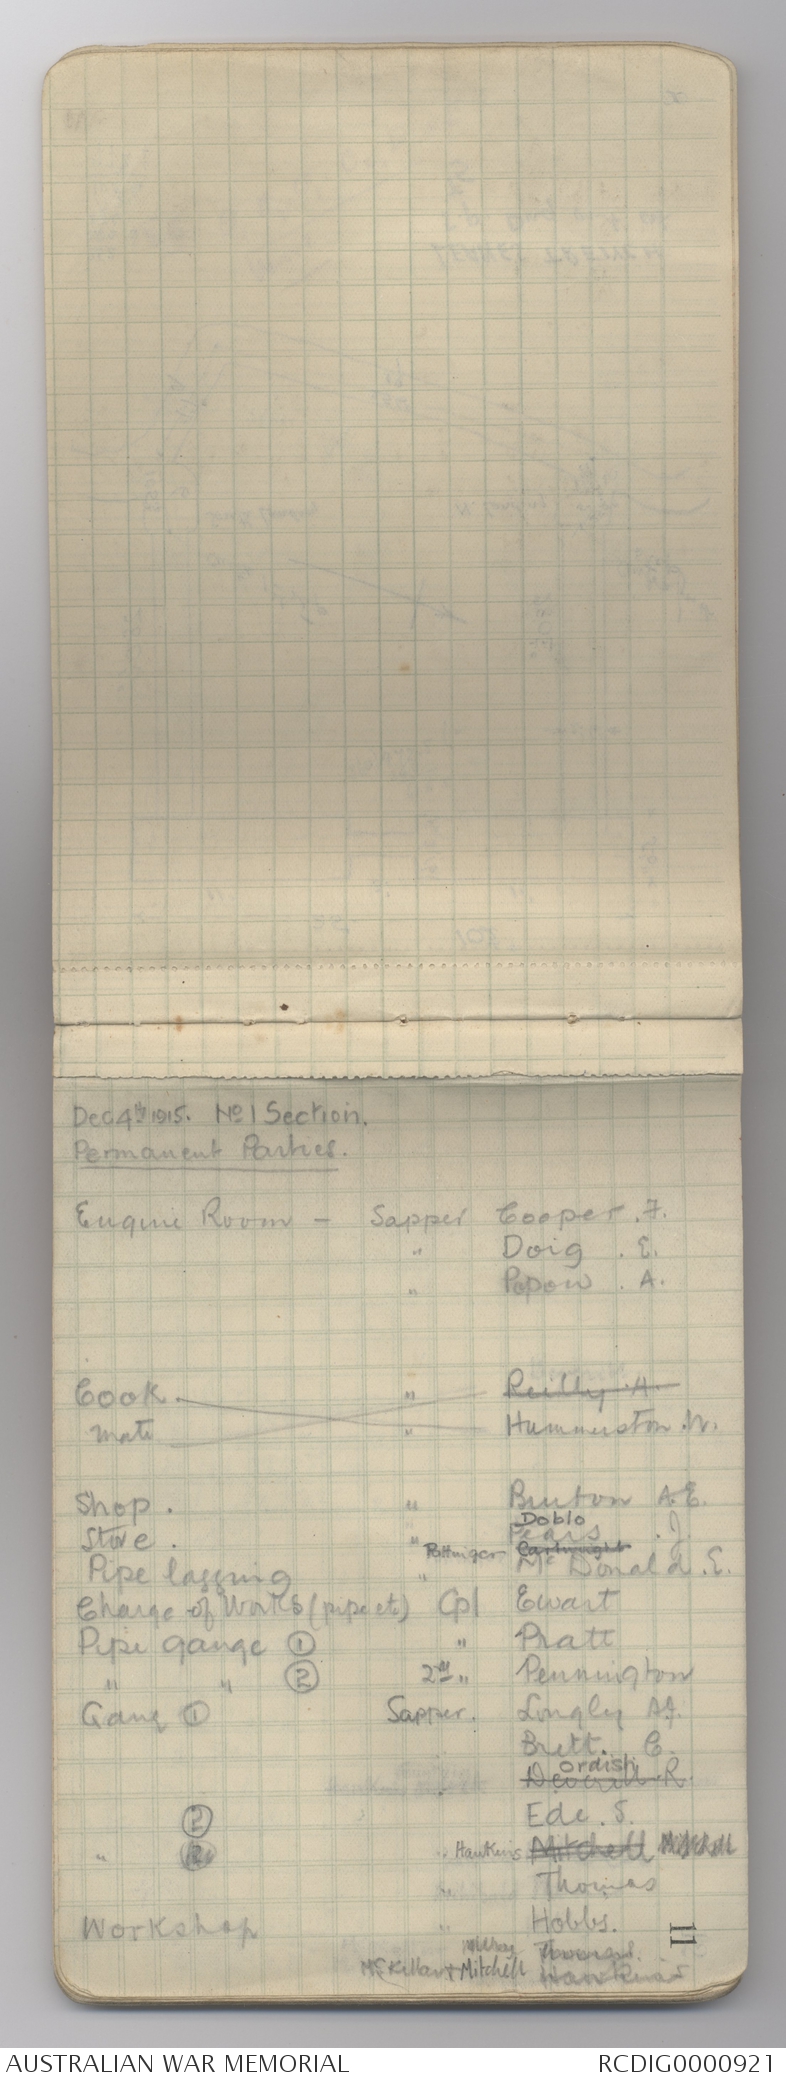 Dec 4th 1915. No 1 Section.
Permanent Parties.
Engine Room - Sapper Cooper. F.
" Doig . E.
" Popow . A.
Cook " Reilly. H.
mate " Hummerston. W.
Shop . " Bruton A.E.
Doblo
Store . " Pears . J.
Pottinger Cartwright
Pipe lagging " McDonald . E.
Charge of Works (pipe etc) Cpl Ewart
Pipe gange ① " Pratt
" " ② 2nd " Pennington
Gang ① Sapper. Longley A.J.
Brett. C.
Ordish
R.
② Ede. S.
" ② " Hawkins Mitchell Mitchell
" Thomas
Workshop " Hobbs.
McKellar & Mitchell Hawkins
11
AUSTRALIAN WAR MEMORIAL RCDIG0000921